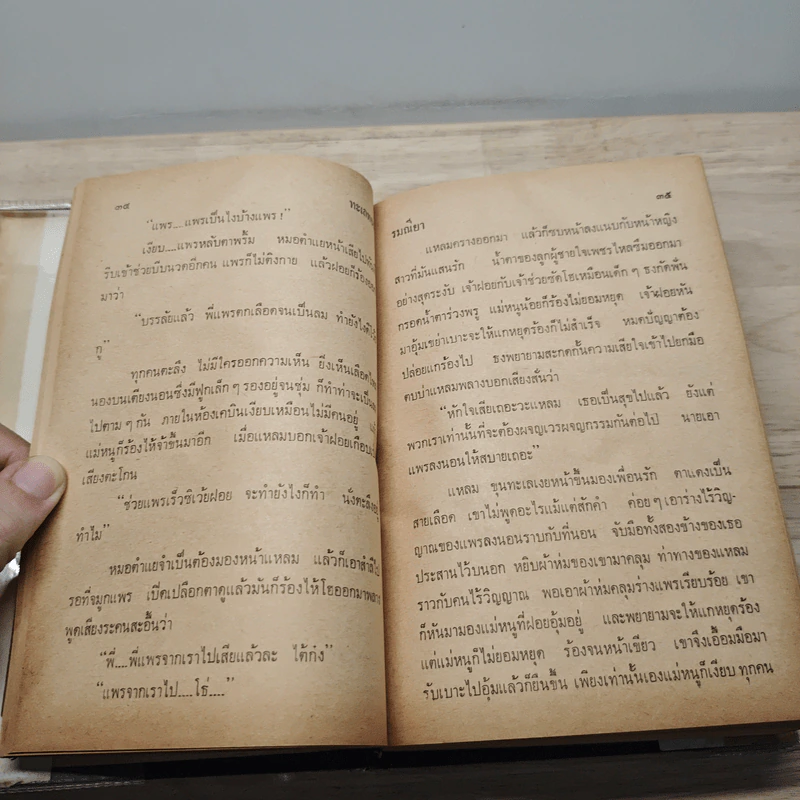 ๓๔
"แพร....แพรเป็นไงบ้างแพร !"
เงียบ....แพรหลับตาพริ้ม หมอตำแยหน้าเสียไป
รีบเข้าช่วยบีบนวดอีกคน แพรก็ไม่ติงกาย แล้วฝอยก็ร้อง
มาว่า
"บรรลัยแล้ว พี่แพรตกเลือดจนเป็นลม ทำยังไงดี
กู"
ทุกคนตะลึง ไม่มีใครออกความเห็น ยิ่งเห็นเลือด
นองบนเตียงนอนซึ่งมีฟูกเล็กๆ รองอยู่จนชุ่ม ก็ทำท่าจะเป็น
ไปตามๆ กัน ภายในห้องเคบินเงียบเหมือนไม่มีคนอยู่
แม่หนูก็ร้องไห้จ้าขึ้นมาอีก เมื่อแหลมบอกเจ้าฝอยเกือบ
เสียงตะโกน
"ช่วยแพรเร็วซิเว้ยฝอย จะทำยังไงก็ทำ นั่งตะลึงอยู่
ทำไม"
หมอตำแยจำเป็นต้องมองหน้าแหลม แล้วก็เอาสำลีไป
รอที่จมูกแพร เปิดเปลือกตาดูแล้วมันก็ร้องไห้โฮออกมาพลาง
พูดเสียงระคนสะอื้นว่า
"พี่....พี่แพรจากเราไปเสียแล้วละ ไต้ก๋ง"
"แพรจากเราไป....โธ่...."
รมณียา
๓๕
แหลมครางออกมา แล้วก็ซบหน้าลงแนบกับหน้าหญิง
สาวที่มันแสนรัก น้ำตาของลูกผู้ชายใจเพชรไหลซึมออกมา
อย่างสุดระงับ เจ้าฝอยกับเจ้าช่วยซัดโฮเหมือนเด็กๆ ธงกัดฟัน
กรอดน้ำตาร่วงพรู แม่หนูน้อยก็ร้องไม่ยอมหยุด เจ้าฝอยหัน
มาอุ้มเขย่าเบาะจะให้แกหยุดร้องก็ไม่สำเร็จ หมดปัญญาต้อง
ปล่อยแกร้องไป ธงพยายามสะกดกั้นความเสียใจเข้าไปยกมือ
ตบบ่าแหลมพลางบอกเสียงสั่นว่า
"หักใจเสียเถอะวะแหลม เธอเป็นสุขไปแล้ว ยังแต่
พวกเราเท่านั้นที่จะต้องผจญเวรผจญกรรมกันต่อไป นายเอา
แพรลงนอนให้สบายเถอะ"
แหลม ขุนทะเลเงยหน้าขึ้นมองเพื่อนรัก ตาแดงเป็น
สายเลือด เขาไม่พูดอะไรแม้แต่สักคำ ค่อยๆ เอาร่างไร้วิญ-
ญาณของแพรลงนอนราบกับที่นอน จับมือทั้งสองข้างของเธอ
ประสานไว้บนอก หยิบผ้าห่มของเขามาคลุม ท่าทางของแหลม
ราวกับคนไร้วิญญาณ พอเอาผ้าห่มคลุมร่างแพรเรียบร้อย เขา
ก็หันมามองแม่หนูที่ฝอยอุ้มอยู่ และพยายามจะให้แกหยุดร้อง
แต่แม่หนูก็ไม่ยอมหยุด ร้องจนหน้าเขียว เขาจึงเอื้อมมือมา
รับเบาะไปอุ้มแล้วก็ยืนขึ้น เพียงเท่านั้นเองแม่หนูก็เงียบ ทุกคน